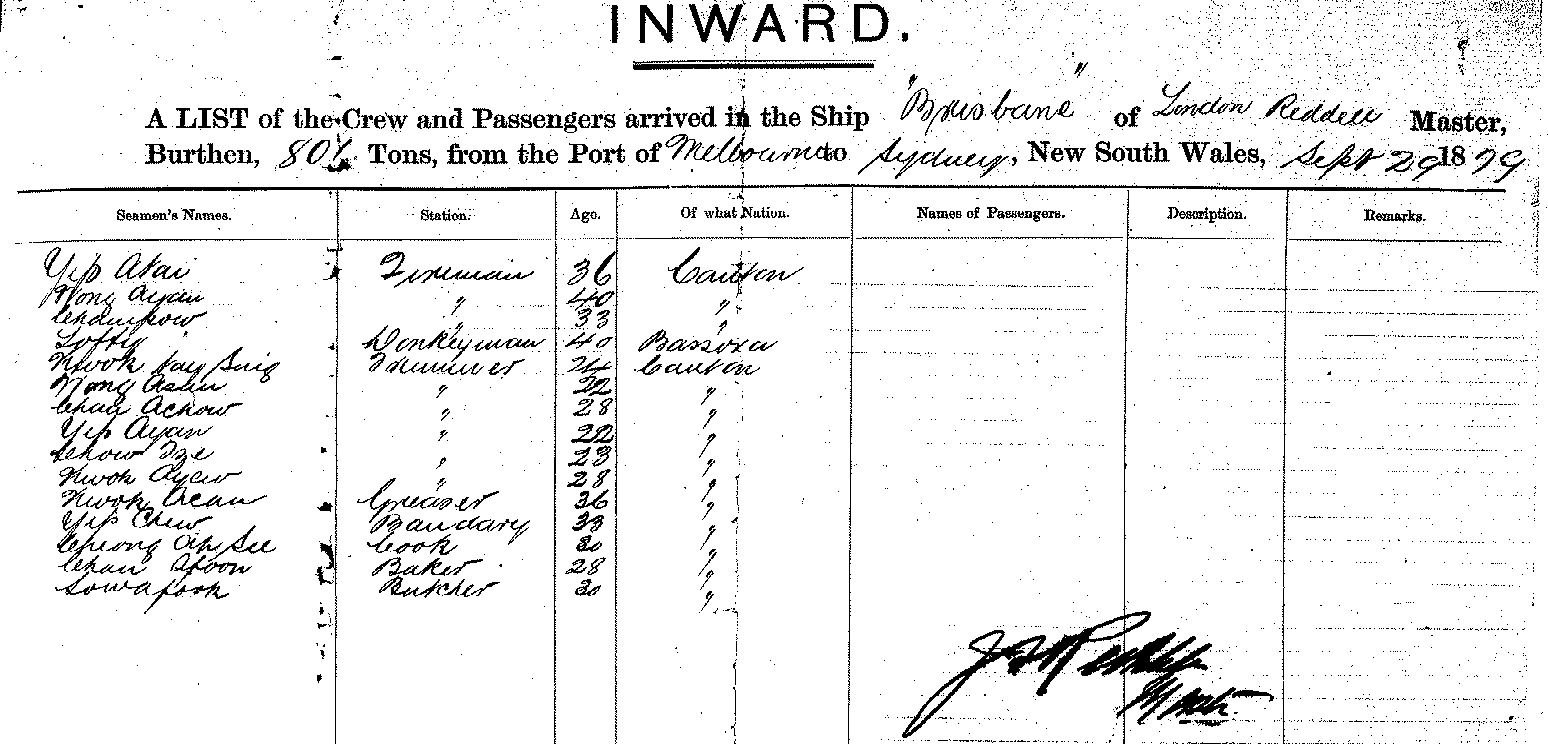 INWARD.
A LIST of the Crew and Passengers arrived in the Ship "Brisbane" of London Reddell Master,
Burthen, 801 Tons, from the Port of Melbourne to Sydney, New South Wales, Sept 29 1879
Seamen's Names. Station. Age. Of what Nation. Names of Passengers. Description. Remarks.
Yip Akai Fireman 36 Canton
Wong Ayan " 40 "
Chanpow " 33 "
Donkeyman 40 Bassora
Kwok Trimmer 24 Canton
Wong Asun " 22 "
Chan Achow " 28 "
Yip Ayan " 22 "
Chow Tze " 23 "
Kwok Ayew " 28 "
Kwok Acan Greaser 36 "
Yip Chew Bandary 38 "
Cheong Ah See Cook 30 "
Chan Afoon Baker 28 "
Sowafook Butcher 30 "
Reddell
Master